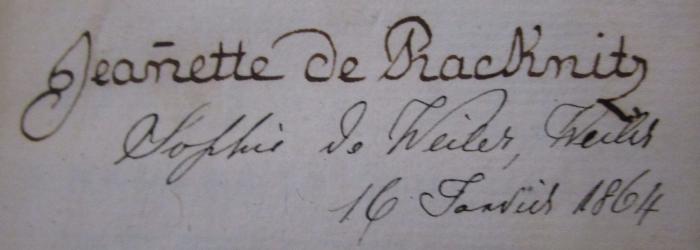 Jean̄ette de Racknitz
Sophie de Weiler, Weiler
16 Janvier 1864